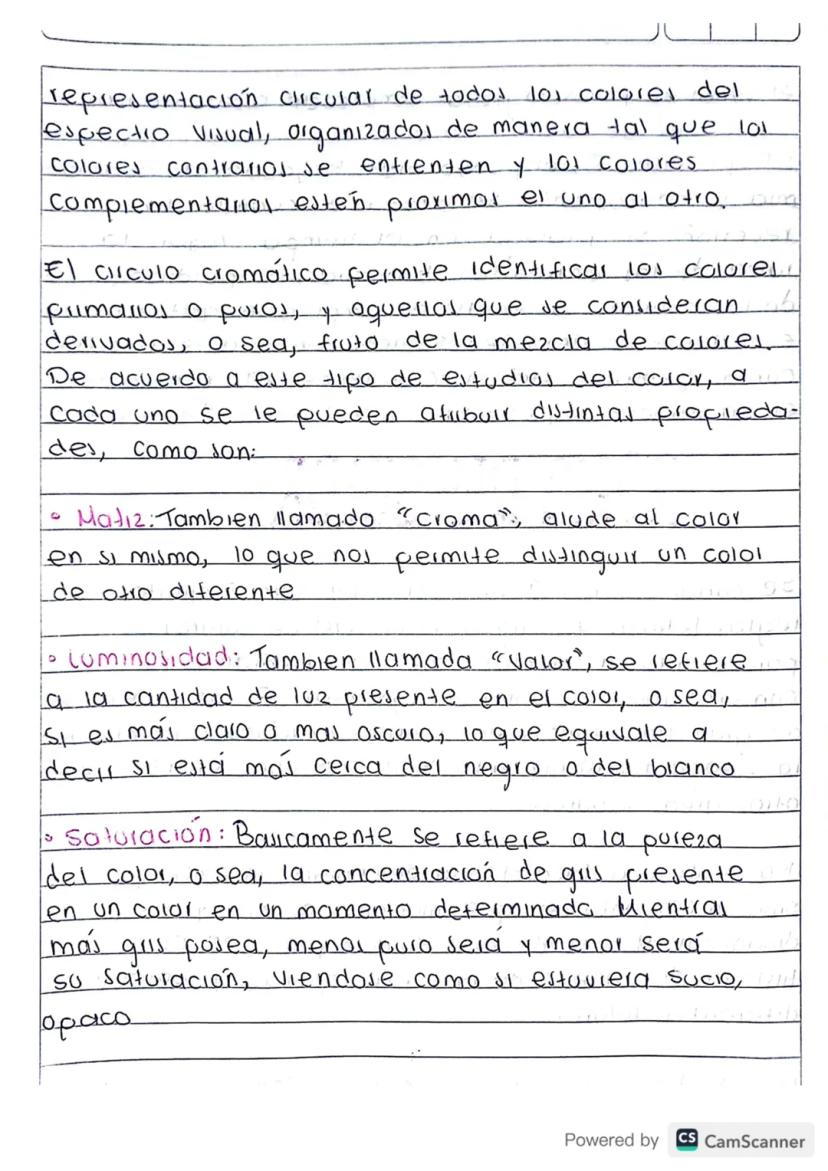 representación circular de todos los colores del
espectro visual, organizados de manera tal que los
colores contrarios se enfrenten y los colores
complementarios estén proximos el uno al otro.
El circulo cromático permite identificar los colores
primarios o puros, y aquellos que se consideran
derivados, o sea, fruto de la mezcla de colores.
De acuerdo a este tipo de estudios del color, a
cada uno se le pueden atribuir distintas propieda-
des, como son:
• Matiz: Tambien llamado "croma", alude al color
en si mismo, lo que nos permite distinguir un color
de otro diferente
• Luminosidad: Tambien llamada "valor", se refiere
a la cantidad de luz presente en el color, o sea,
si es más claro o mas oscuro, lo que equivale a
decir si está más cerca del negro o del blanco
• Saturación: Basicamente se refiere a la pureza
del color, o sea, la concentración de gris presente
en un color en un momento determinado. Mientras
más gris posea, menos puro será y menor será
su saturación, viendose como si estuviera sucio,
opaco
Powered by CS CamScanner